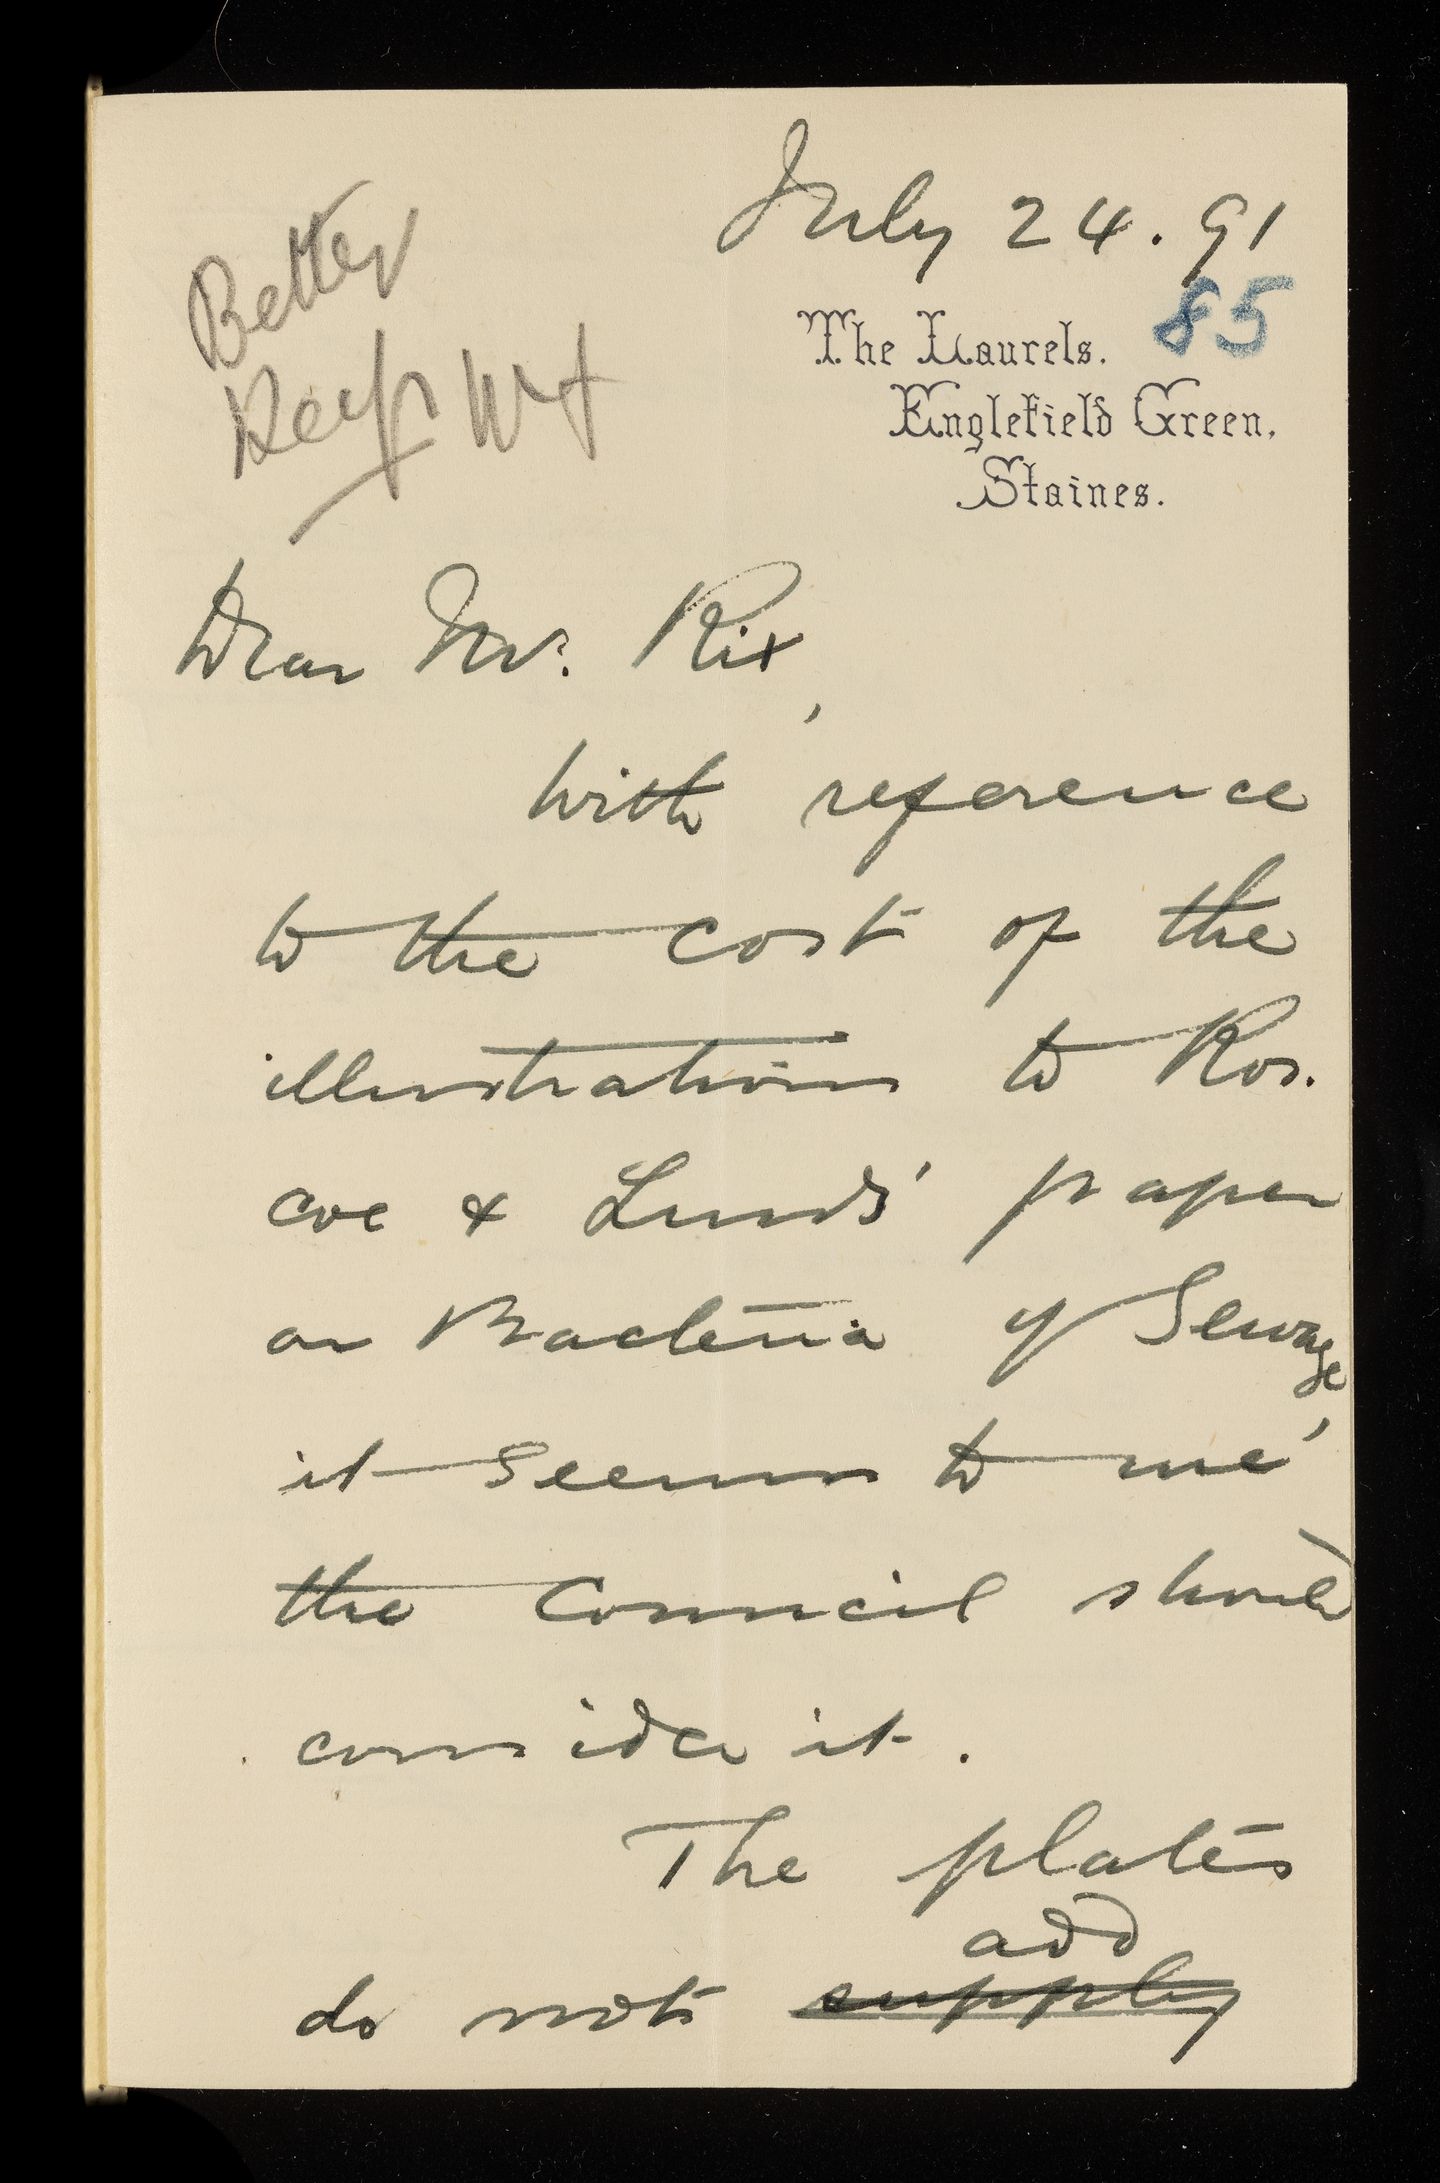 July 24. 91
85
The Laurels.
Englefield Green,
Staines.
Better
Keep
Dear Mr. Rix,
With reference
to the cost of the
illustrations to Ros.
coe & Lunds' paper
on Bacteria of Sewage
it seems to me,
the Council should
consider it.
The plates
add
do not supply